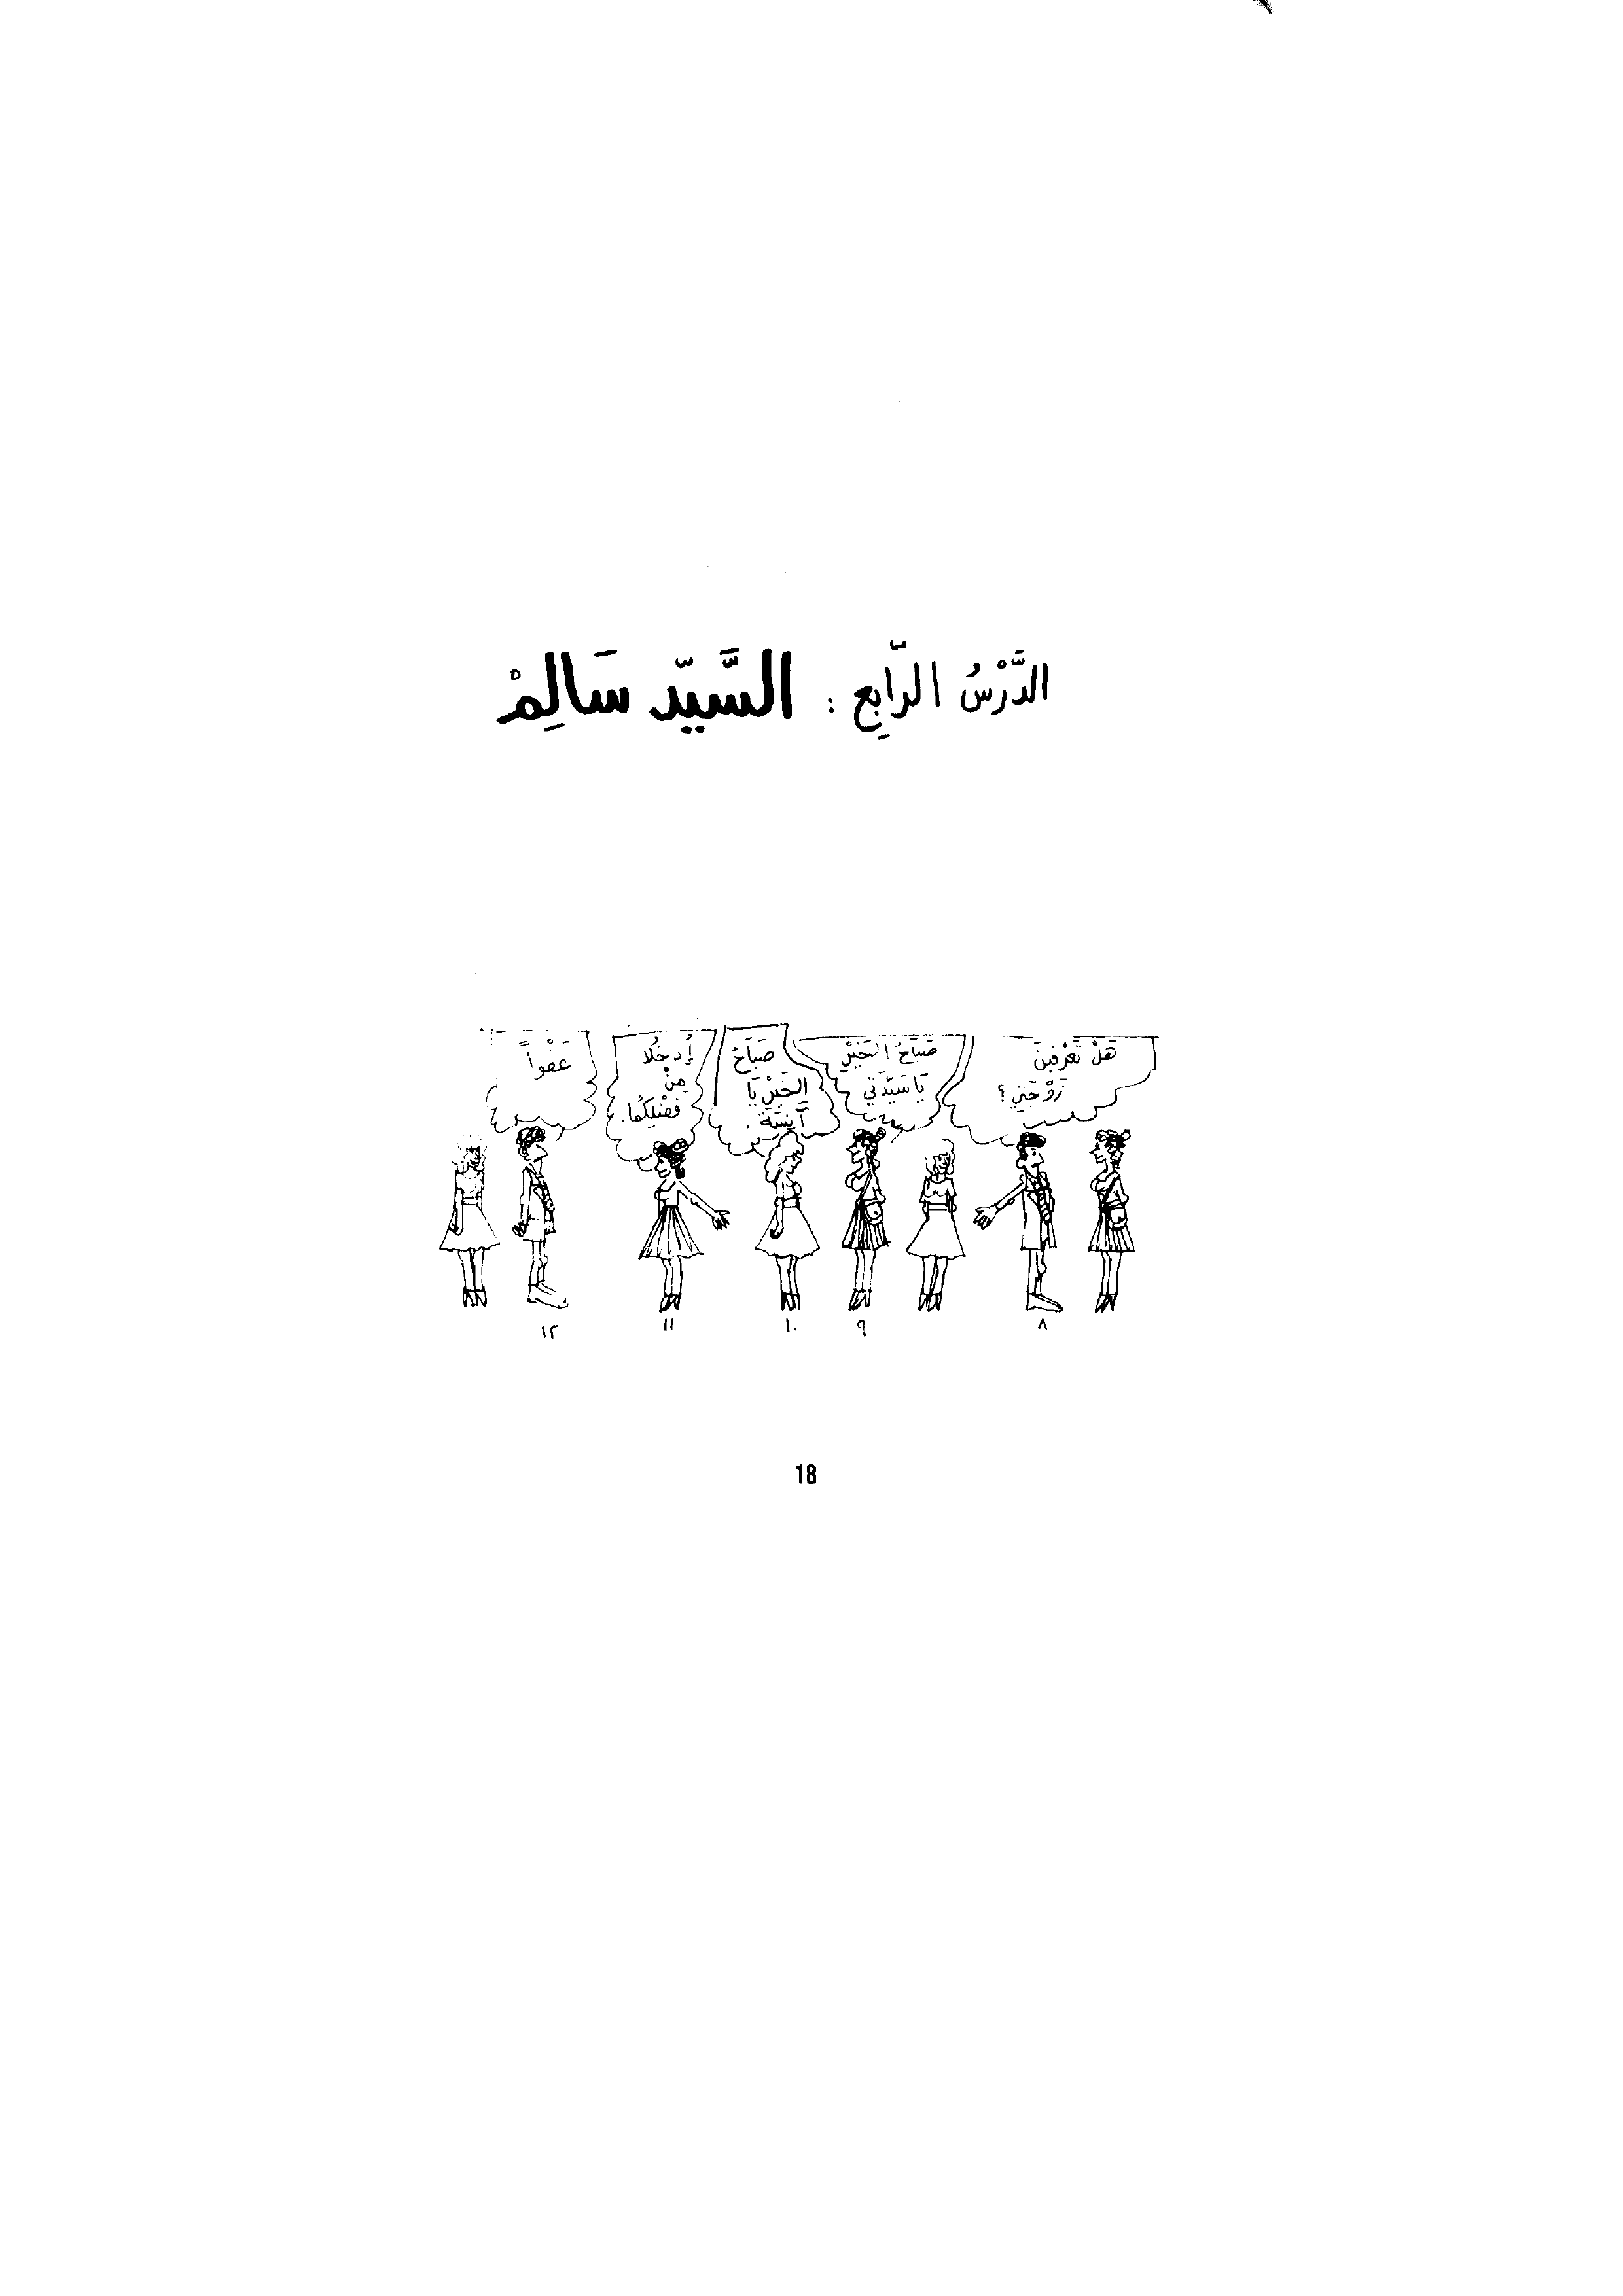 الدَّرْسُ الرَّابِع : السَّيِّد سَالِمْ
هَلْ تَعْرِفِينَ
زَوْجَتِي ؟
صَبَاحُ الخَيْرِ
يَا سَيِّدَتِي
صَبَاحُ
الخَيْرِ يَا
آنِسَة .
أُدخُلَا
مِنْ
فَضْلِكُمَا.
عَفْواً
٨
٩
١٠
١١
١٢
18